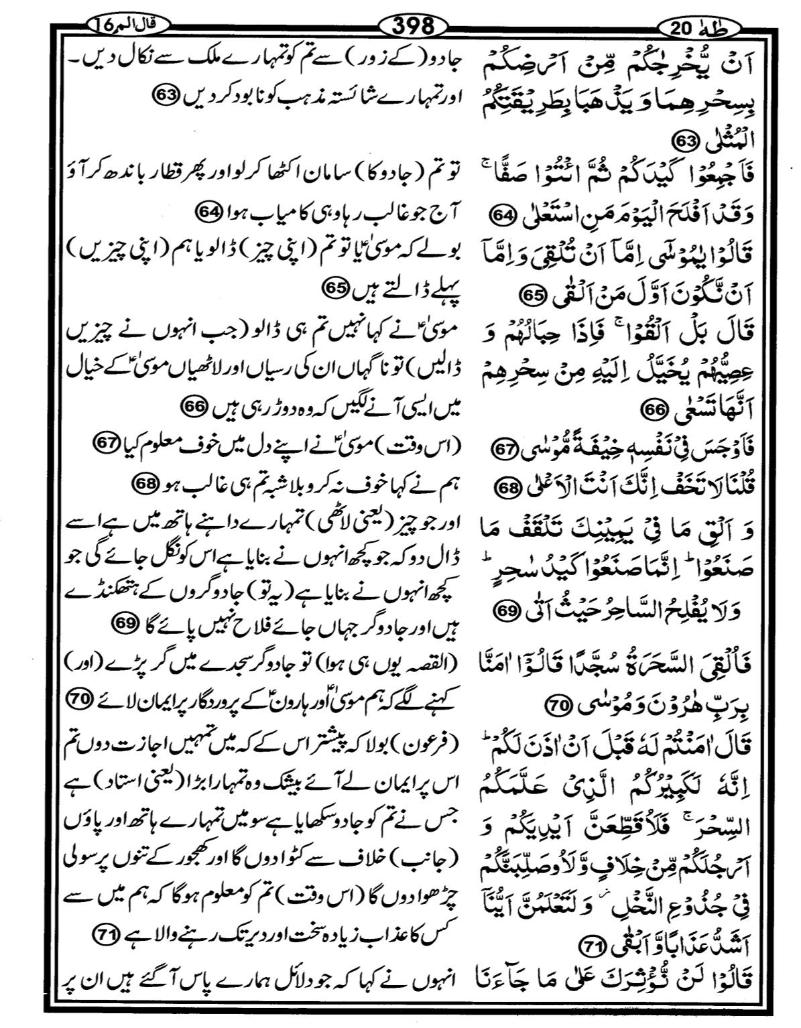 طٰهٰ 20
398
قال الم 16
اَنْ يُّخْرِجٰكُمْ مِّنْ اَرْضِكُمْ
بِسِحْرِهِمَا وَيَذْهَبَا بِطَرِيْقَتِكُمُ
الْمُثْلٰى 63
فَاَجْمِعُوْا كَيْدَكُمْ ثُمَّ ائْتُوْا صَفًّا ۚ
وَقَدْ اَفْلَحَ الْيَوْمَ مَنِ اسْتَعْلٰى 64
قَالُوْا يٰمُوْسٰٓى اِمَّآ اَنْ تُلْقِيَ وَاِمَّآ
اَنْ نَّكُوْنَ اَوَّلَ مَنْ اَلْقٰى 65
قَالَ بَلْ اَلْقُوْا ۚ فَاِذَا حِبَالُهُمْ وَ
عِصِيُّهُمْ يُخَيَّلُ اِلَيْهِ مِنْ سِحْرِهِمْ
اَنَّهَا تَسْعٰى 66
فَاَوْجَسَ فِيْ نَفْسِهٖ خِيْفَةً مُّوْسٰى 67
قُلْنَا لَا تَخَفْ اِنَّكَ اَنْتَ الْاَعْلٰى 68
وَ اَلْقِ مَا فِيْ يَمِيْنِكَ تَلْقَفْ مَا
صَنَعُوْا ۭ اِنَّمَا صَنَعُوْا كَيْدُ سٰحِرٍ ۭ
وَلَا يُفْلِحُ السَّاحِرُ حَيْثُ اَتٰى 69
فَاُلْقِيَ السَّحَرَةُ سُجَّدًا قَالُوْٓا اٰمَنَّا
بِرَبِّ هٰرُوْنَ وَمُوْسٰى 70
قَالَ اٰمَنْتُمْ لَهٗ قَبْلَ اَنْ اٰذَنَ لَكُمْ ۭ
اِنَّهٗ لَكَبِيْرُكُمُ الَّذِيْ عَلَّمَكُمُ
السِّحْرَ ۚ فَلَاُقَطِّعَنَّ اَيْدِيَكُمْ وَ
اَرْجُلَكُمْ مِّنْ خِلَافٍ وَّلَاُوصَلِّبَنَّكُمْ
فِيْ جُذُوْعِ النَّخْلِ ۡ وَلَتَعْلَمُنَّ اَيُّنَآ
اَشَدُّ عَذَابًا وَّاَبْقٰى 71
قَالُوْا لَنْ نُّؤْثِرَكَ عَلٰى مَا جَاۗءَنَا
جادو (کے زور) سے تم کو تمہارے ملک سے نکال دیں۔
اور تمہارے شائستہ مذہب کو نابود کر دیں 63
تو تم (جادو کا) سامان اکٹھا کرلو اور پھر قطار باندھ کر آؤ
آج جو غالب رہا وہی کامیاب ہوا 64
بولے کہ موسیٰؑ یا تو تم (اپنی چیز) ڈالو یا ہم (اپنی چیزیں)
پہلے ڈالتے ہیں 65
موسیٰؑ نے کہا نہیں تم ہی ڈالو (جب انہوں نے چیزیں
ڈالیں) تو ناگہاں ان کی رسیاں اور لاٹھیاں موسیٰؑ کے خیال
میں ایسی آنے لگیں کہ وہ دوڑ رہی ہیں 66
(اس وقت) موسیٰؑ نے اپنے دل میں خوف معلوم کیا 67
ہم نے کہا خوف نہ کرو بلاشبہ تم ہی غالب ہو 68
اور جو چیز (یعنی لاٹھی) تمہارے داہنے ہاتھ میں ہے اسے
ڈال دو کہ جو کچھ انہوں نے بنایا ہے اس کو نگل جائے گی جو
کچھ انہوں نے بنایا ہے (یہ تو) جادوگروں کے ہتھکنڈے
ہیں اور جادوگر جہاں جائے فلاح نہیں پائے گا 69
(القصہ یوں ہی ہوا) تو جادوگر سجدے میں گر پڑے (اور)
کہنے لگے کہ ہم موسیٰؑ اور ہارونؑ کے پروردگار پر ایمان لائے 70
(فرعون) بولا کہ پیشتر اس کے کہ میں تمہیں اجازت دوں تم
اس پر ایمان لے آئے بیشک وہ تمہارا بڑا (یعنی استاد) ہے
جس نے تم کو جادو سکھایا ہے سو میں تمہارے ہاتھ اور پاؤں
(جانب) خلاف سے کٹوا دوں گا اور کھجور کے تنوں پر سولی
چڑھوا دوں گا (اس وقت) تم کو معلوم ہوگا کہ ہم میں سے
کس کا عذاب زیادہ سخت اور دیر تک رہنے والا ہے 71
انہوں نے کہا کہ جو دلائل ہمارے پاس آگئے ہیں ان پر